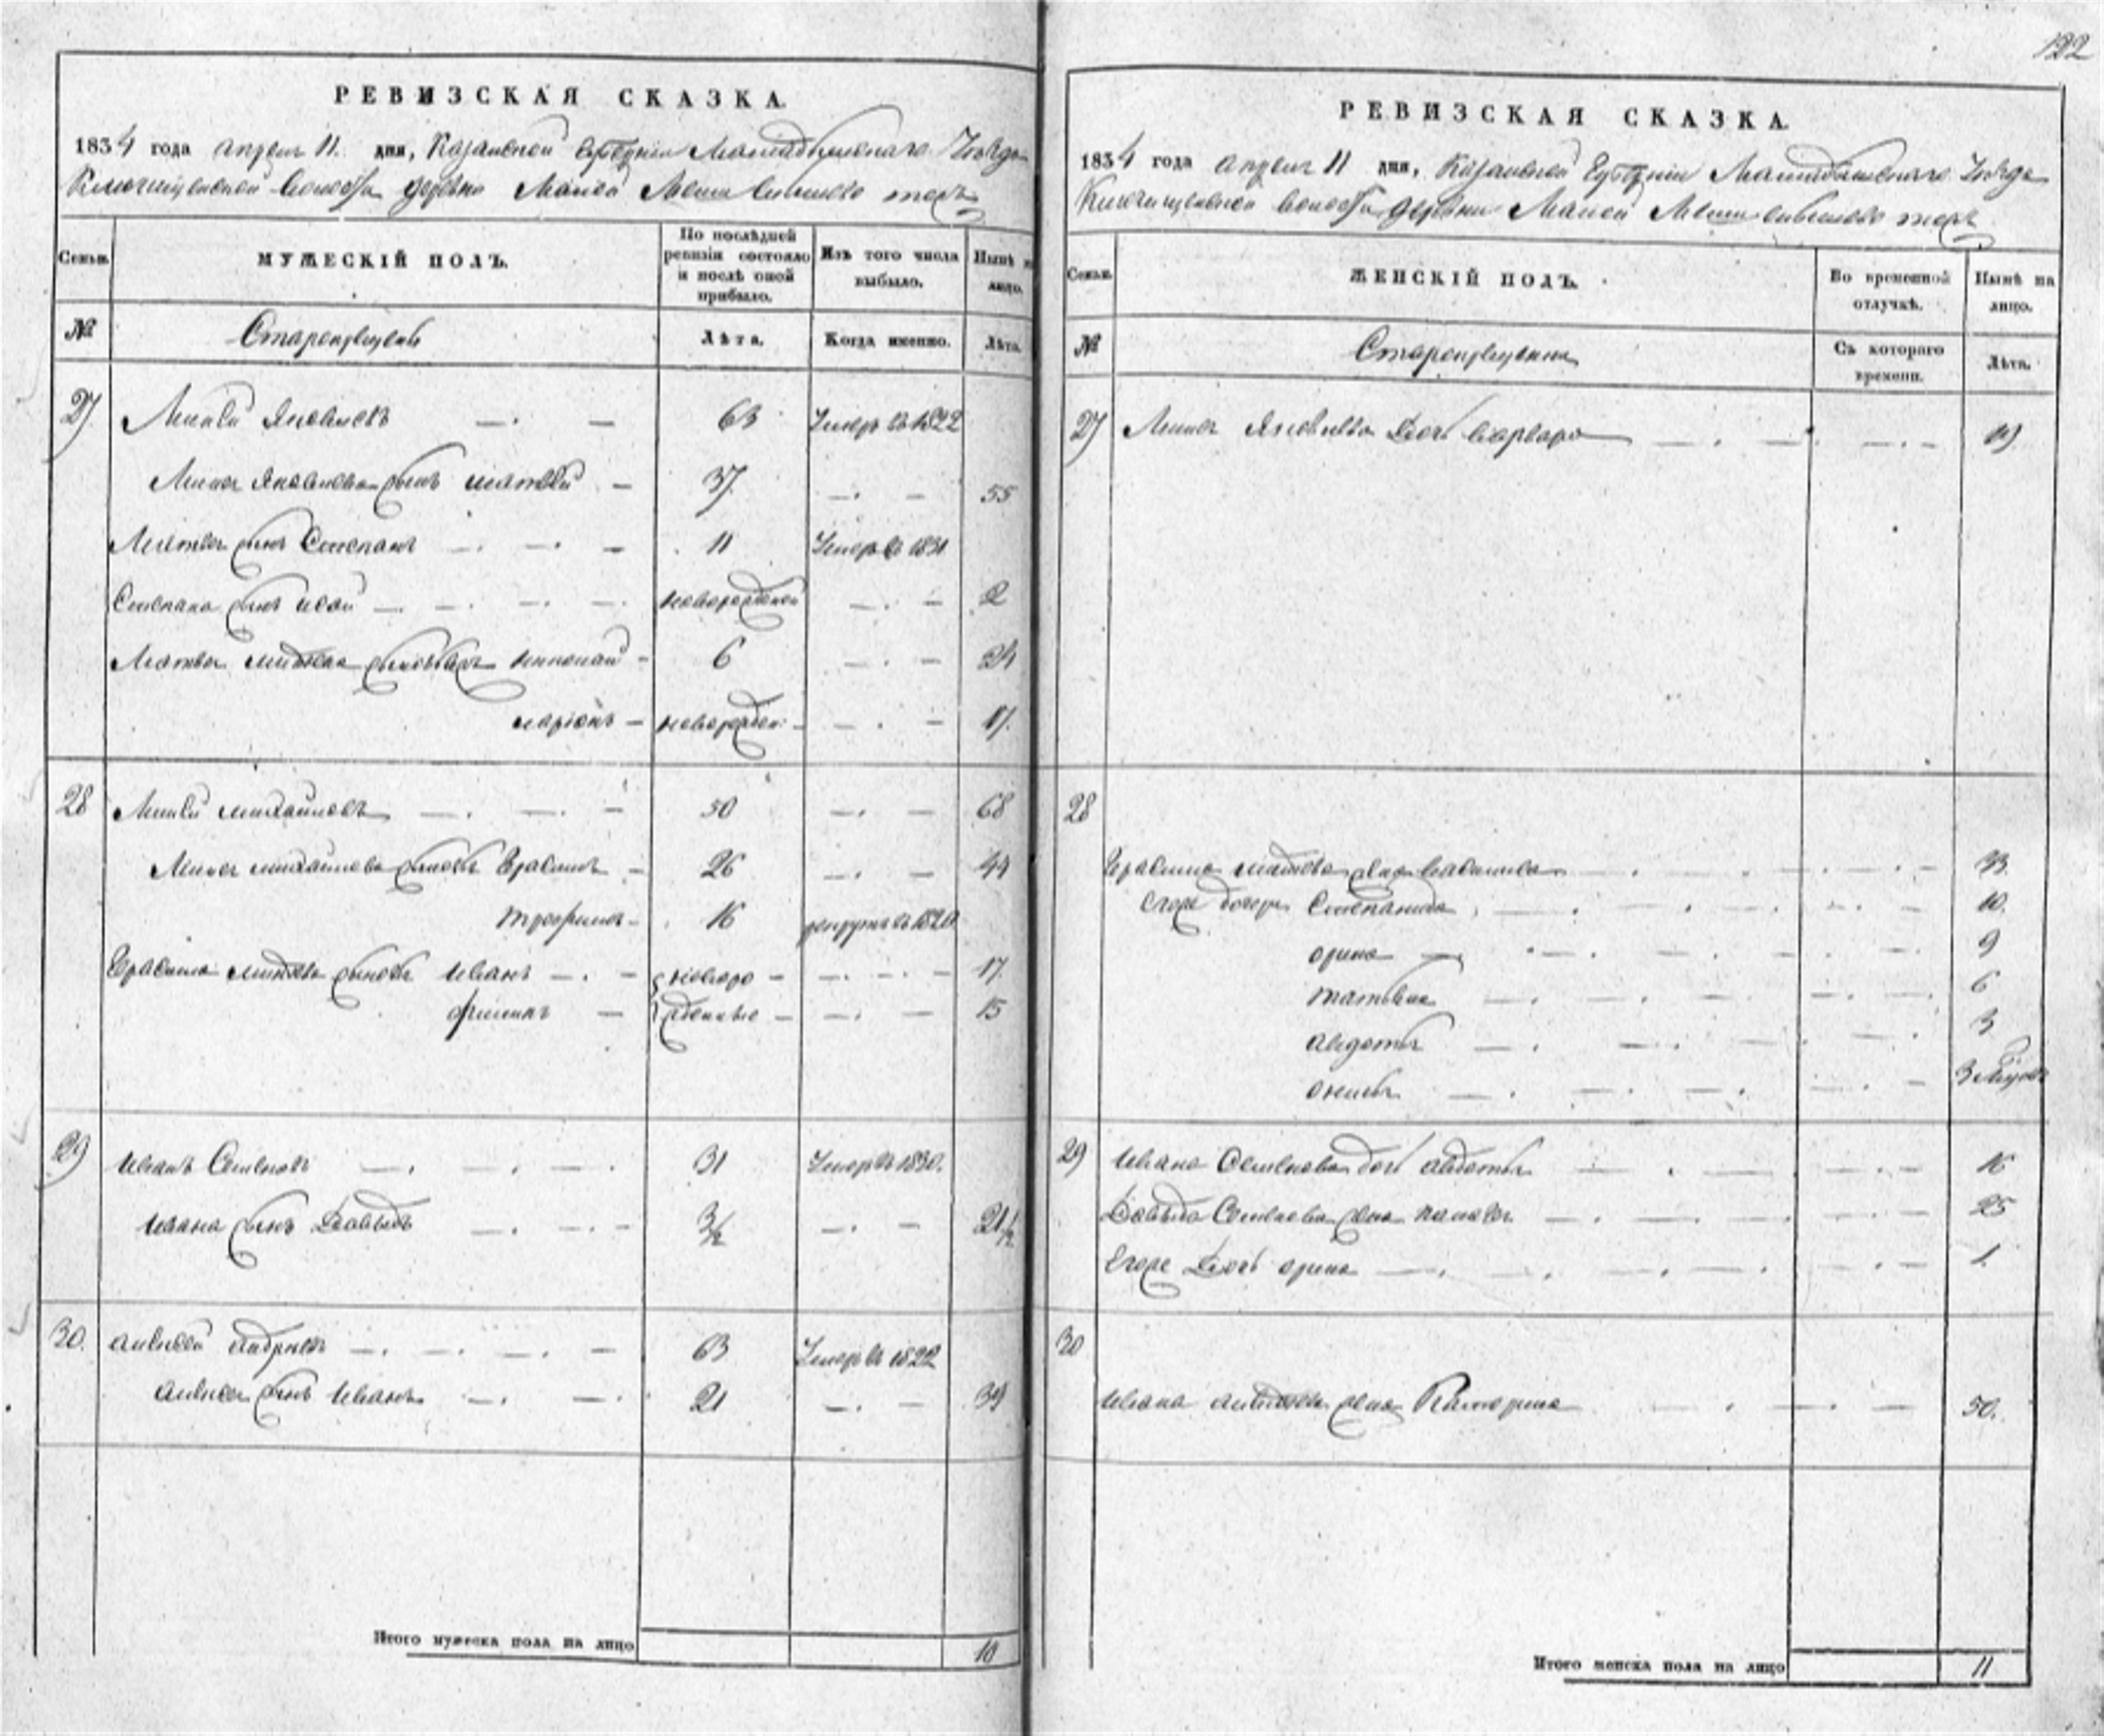 122
РЕВИЗСКАЯ СКАЗКА.
1834 года апреля 11 дня, Казанской Губернии Мамадышскаго Уезда
Ключищенской волости деревни Малой Меши
МУЖЕСКІЙ ПОЛЪ.
Семьи.
По послѣдней ревизіи состояло и послѣ оной прибыло.
Изъ того числа выбыло.
Нынѣ на лицо.
№
Старокрещенъ
Лѣта.
Когда именно.
Лѣта.
27 Яковлевъ 63 Умеръ въ 1822
Яковлева сынъ Матвей 37 55
Матвея сынъ Степанъ 11 Умеръ въ 1831
Степана сынъ Исай новорожденой 2
Матвея сыновья Николай 6 24
Ларіонъ новорожден 17
28 Михайловъ 50 68
Михайлова сыновья Герасимъ 26 44
Трофимъ 16 рекрутъ въ
Герасима сыновья Иванъ новоро 17
Филипъ жденные 15
29 Иванъ Семеновъ 31 Умеръ въ 1830.
Ивана сынъ Давыдъ 3½ 21½
30. Алексей Андреевъ 63 Умеръ въ 1822
Алексея сынъ Иванъ 21 39
Итого мужеска пола на лицо 10
РЕВИЗСКАЯ СКАЗКА.
1834 года апреля 11 дня, Казанской Губернии Мамадышскаго Уезда
Ключищенской волости деревни Малой Меши
Семьи.
ЖЕНСКІЙ ПОЛЪ.
Во временной отлучкѣ.
Нынѣ на лицо.
№
Старокрещенки
Съ котораго времени.
Лѣта.
27 Яковлева дочь Варвара
28
Герасима жена Василиса 33.
Егоже дочери Степанида 10.
Орина 9
Татьяна 6
Авдотья 3
3
29 Ивана Семенова дочь Авдотья 16
Давыда жена 25
Егоже дочь Орина 1.
30
Ивана жена Катерина 50.
Итого женска пола на лицо 11